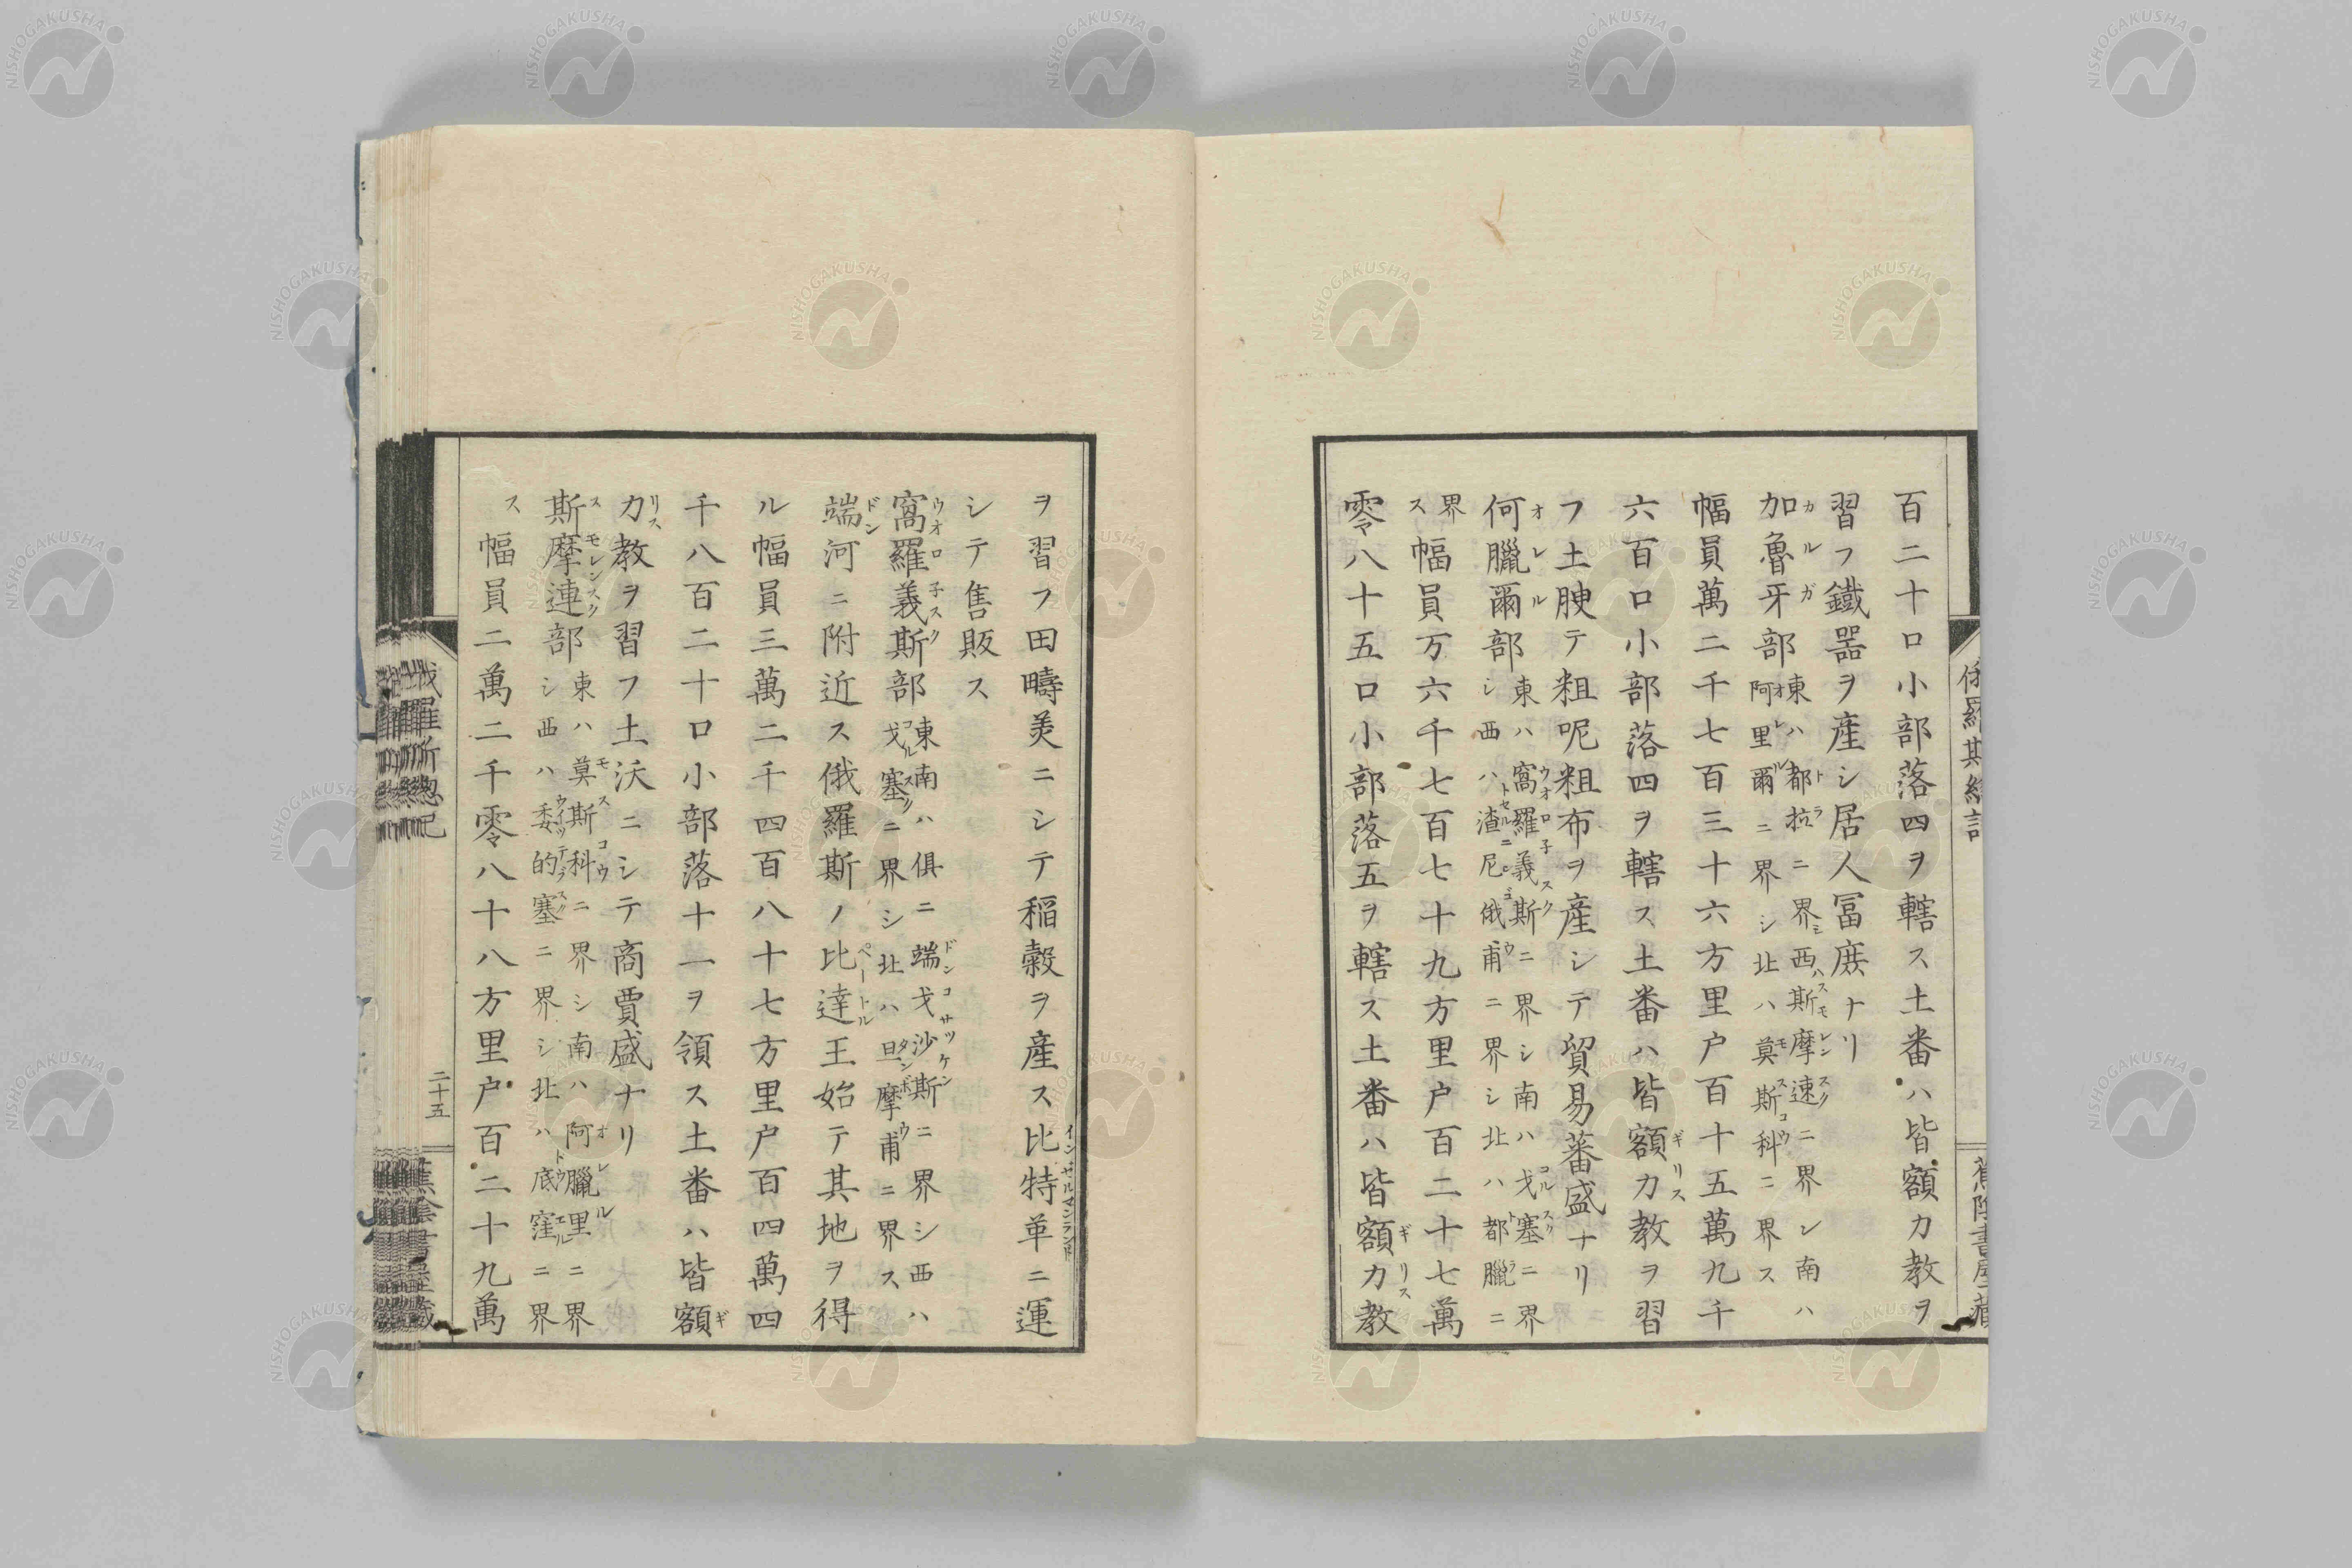 百二十口小部落四ヲ轄ス土番ハ皆額力教ヲ
習フ鐵器ヲ産シ居人冨庶ナリ
加魯牙部東ハ都拉ニ界シ西ハ斯摩速ニ界シ南ハ
阿里爾ニ界シ北ハ莫斯科ニ界ス
幅員萬二千七百三十六方里户百十五萬九千
六百口小部落四ヲ轄ス土番ハ皆額力教ヲ習
フ土腴テ粗呢粗布ヲ産シテ貿易蕃盛ナリ
何臘爾部東ハ窩羅義斯ニ界シ南ハ戈塞ニ界
シ西ハ渣尼俄甫ニ界シ北ハ都臘ニ
界
ス
幅員万六千七百七十九方里户百二十七萬
零八十五口小部落五ヲ轄ス土番ハ皆額力教
俄羅斯總記
蕉陰書屋藏
ヲ習フ田疇美ニシテ稲穀ヲ産ス比特革ニ運
シテ售販ス
窩羅義斯部東南ハ俱ニ端戈沙斯ニ界シ西ハ
戈塞ニ界シ北ハ旦摩甫ニ界ス
端河ニ附近ス俄羅斯ノ比達王始テ其地ヲ得
ル幅員三萬二千四百八十七方里户百四萬四
千八百二十口小部落十一ヲ領ス土番ハ皆額
力教ヲ習フ土沃ニシテ商賈盛ナリ
斯摩連部東ハ莫斯科ニ界シ南ハ阿臘里ニ界
シ西ハ委的塞ニ界シ北ハ底窪ニ界
ス
幅員二萬二千零八十八方里户百二十九萬
俄羅斯總記
二十五
蕉陰書屋藏
NISHOGAKUSHA